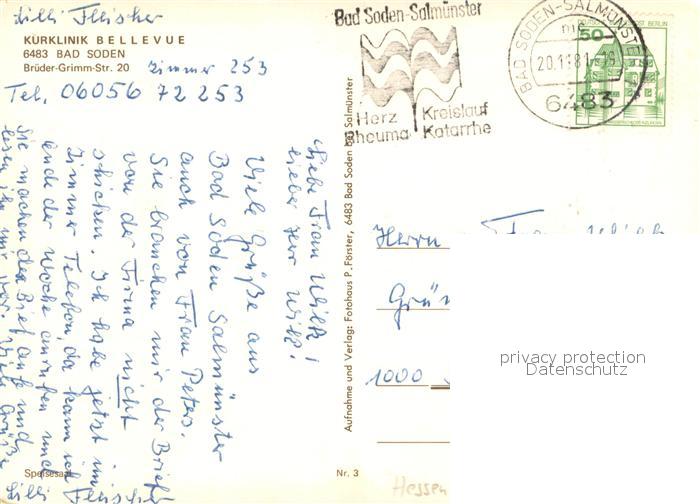 Lilli Fleischer
KURKLINIK BELLEVUE
6483 BAD SODEN
Brüder-Grimm-Str. 20 Zimmer 253
Tel. 06056 72 253
Liebe Frau Wilk!
lieber Herr Wilk!
Viele Grüße aus
Bad Soden Salmünster
auch von Frau Peters.
Sie brauchen mir der Brief
von der Firma nicht
schicken. Ich habe jetzt im
Zimmer Telefon, da kann ich
ende der Woche anrufen und
Sie machen den Brief auf und
lesen ihn mir vor. Viele Grüße
Lilli Fleischer
Speisesaal
Nr. 3
Aufnahme und Verlag: Fotohaus P. Förster, 6483 Bad Soden Bad Salmünster
Bad Soden-Salmünster
Herz Kreislauf
Rheuma Katarrhe
BAD SODEN-SALMÜNSTER
20.11.81
6483
DEUTSCHE BUNDESPOST BERLIN
50
Herrn Frau Wilk
Grün
1000
Hessen
privacy protection
Datenschutz